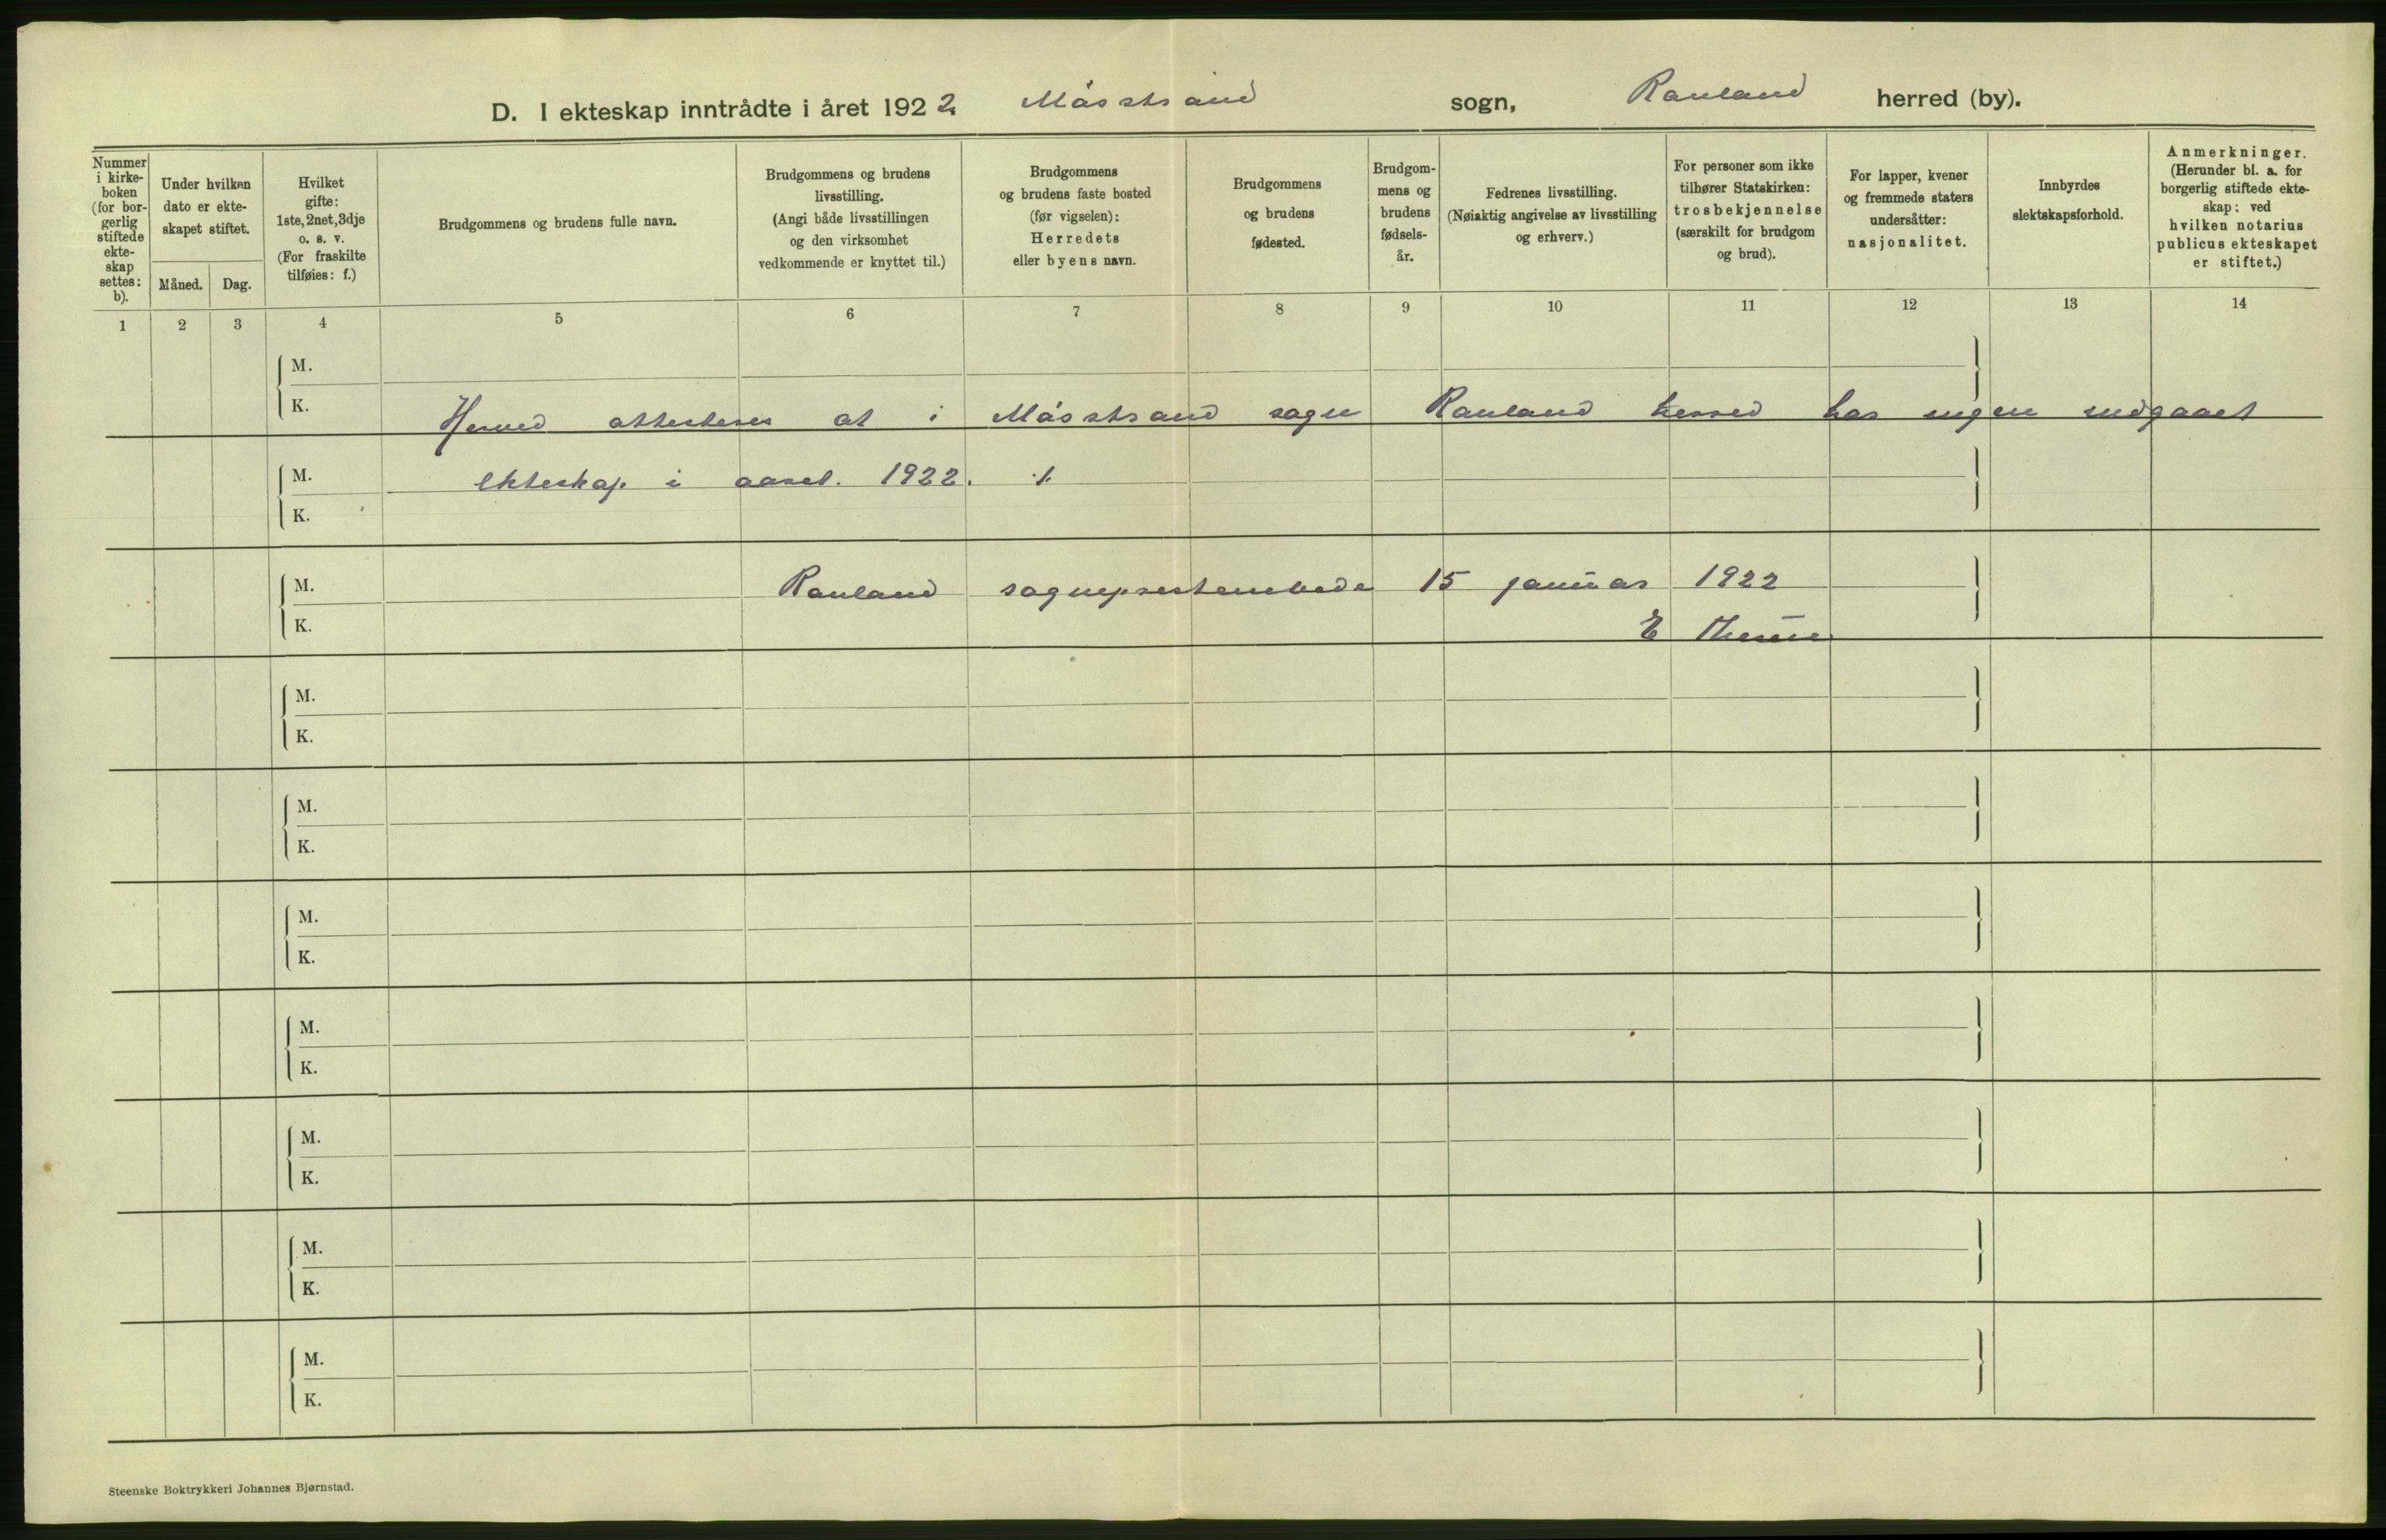 D. I ekteskap inntrådte i året 1922 Måsstrand sogn, Rauland herred (by).
Nummer
i kirke-
boken
(for bor-
gerlig
stiftede
ekte-
skap
settes:
b).
Under hvilken
dato er ekte-
skapet stiftet.
Måned.
Dag.
Hvilket
gifte:
1ste, 2net, 3dje
o. s. v.
(For fraskilte
tilføies: f.)
Brudgommens og brudens fulle navn.
Brudgommens og brudens
livsstilling.
(Angi både livsstillingen
og den virksomhet
vedkommende er knyttet til.)
Brudgommens
og brudens faste bosted
(før vigselen):
Herredets
eller byens navn.
Brudgommens
og brudens
fødested.
Brudgom-
mens og
brudens
fødsels-
år.
Fedrenes livsstilling.
(Nøiaktig angivelse av livsstilling
og erhverv.)
For personer som ikke
tilhører Statskirken:
trosbekjennelse
(særskilt for brudgom
og brud).
For lapper, kvener
og fremmede staters
undersåtter:
nasjonalitet.
Innbyrdes
slektskapsforhold.
Anmerkninger.
(Herunder bl. a. for
borgerlig stiftede ekte-
skap: ved
hvilken notarius
publicus ekteskapet
er stiftet.)
1 2 3 4 5 6 7 8 9 10 11 12 13 14
M.
K.
Herved attesteres at i Måsstrand sogn Rauland herred har ingen indgaaet
M. ekteskap i aaret. 1922. ./.
K.
M. Rauland sogneprestembede 15 januar 1922
K. E
M.
K.
M.
K.
M.
K.
M.
K.
M.
K.
M.
K.
M.
K.
Steenske Boktrykkeri Johannes Bjørnstad.